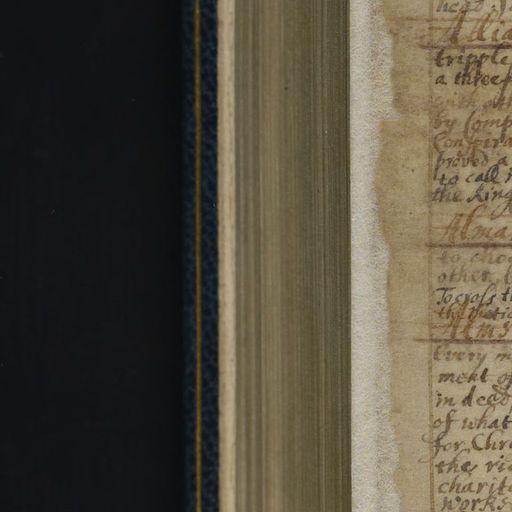 head
Allia
tripple
a three
with oth
by Comp
Conspira
proved a
to call
the King
Alma
to choo
other
To cross t
the
Alms
Every m
ment of
indeed
of what
for Chr
the ri
charit
works